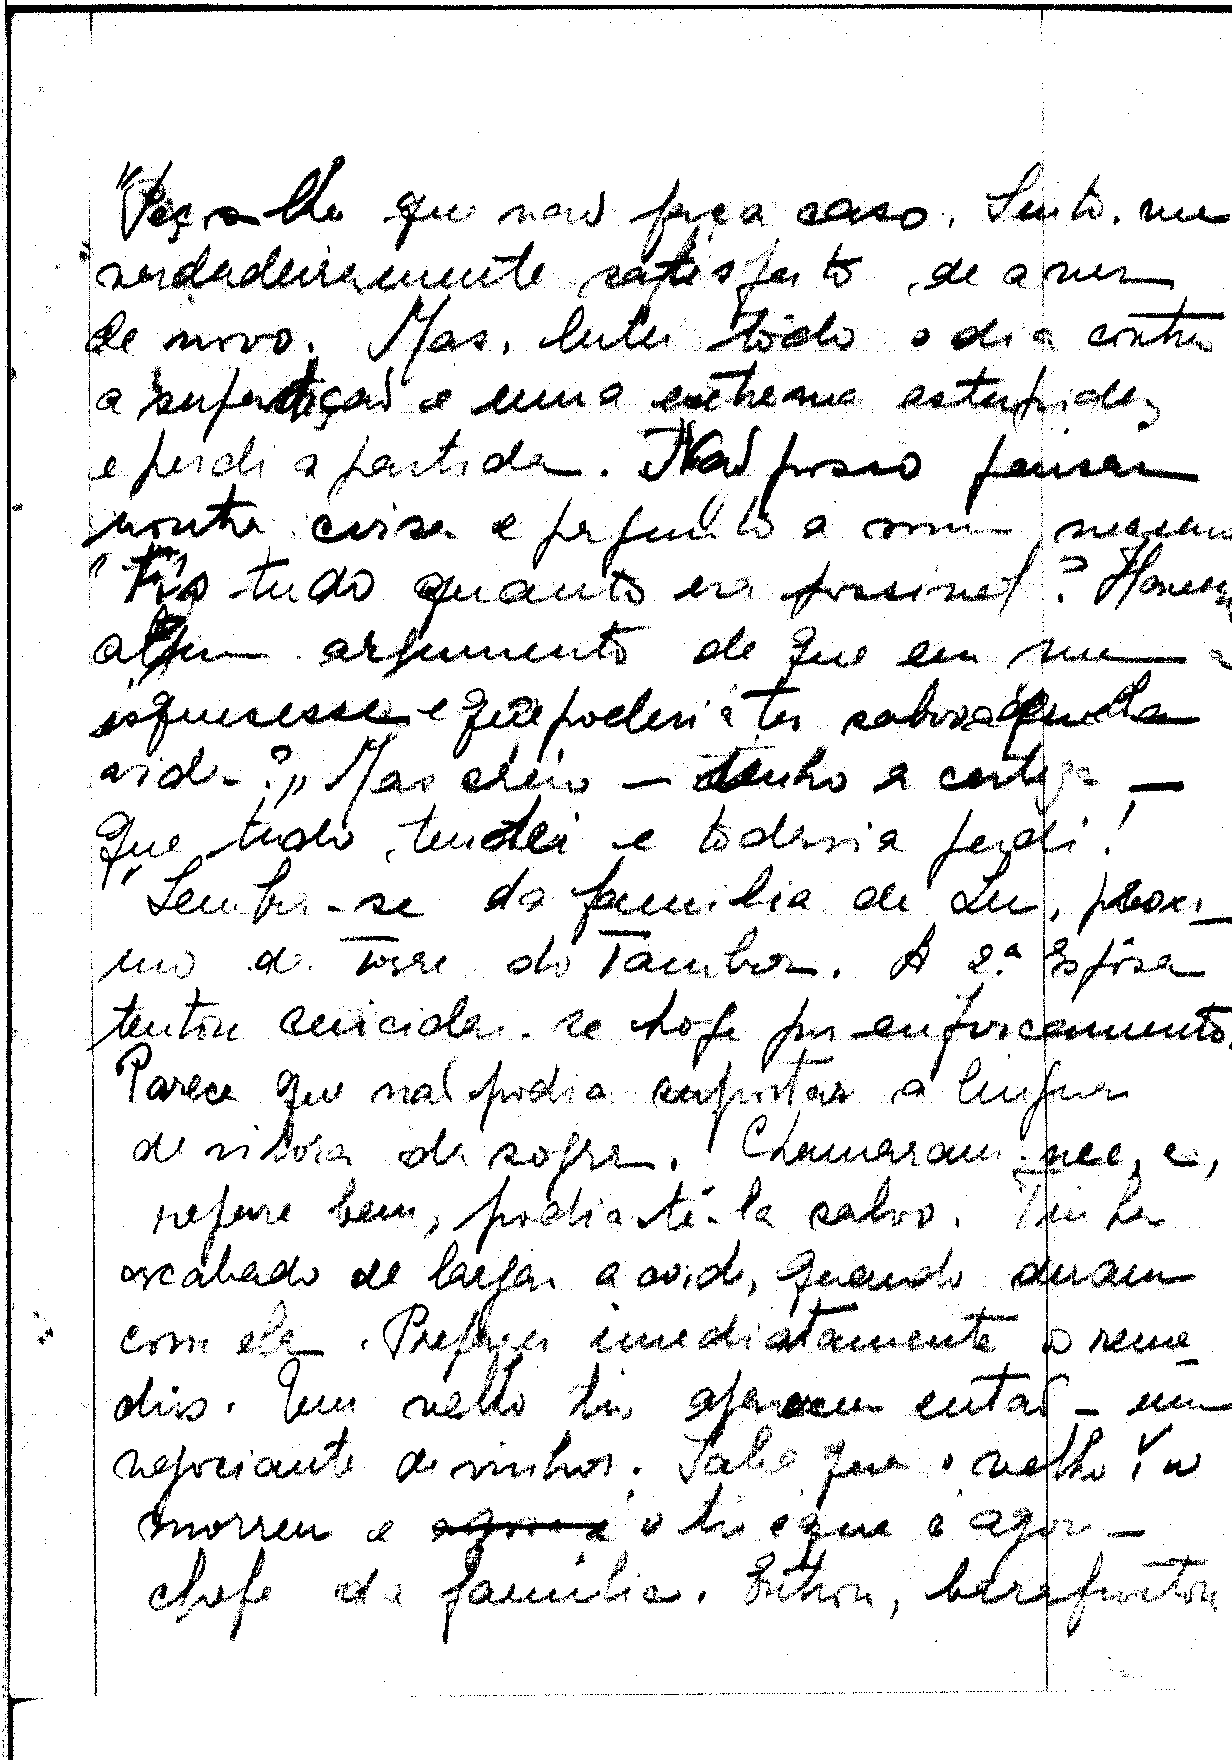 "Peço-lhe que não faça caso. Sinto-me
verdadeiramente satisfeito de a ver
de novo. Mas, lutei todo o dia contra
a superstição e uma extrema estupidez
e perdi a partida. Não posso pensar
noutra coisa e pergunto a mim mesmo
"Fiz tudo quanto era possível? Haveria
algum argumento de que eu me
esquecesse e que poderia ter salvo aquela
vida?" Mas creio — tenho a certeza —
que tudo tentei e todavia perdi!
"Lembra-se da família de Lu, próxi-
mo da Torre do Tambor. A 2.ª Espôsa
tentou suicidar-se hoje por enforcamento.
Parece que não podia suportar a língua
de víbora da sogra. Chamaram-me, e,
repare bem, podia tê-la salvo. Tinha
acabado de largar a corda, quando deram
com ela. Preparei imediatamente o remé-
dio. Um velho tio apareceu então — um
negociante de vinhos. Sabe que o velho Lu
morreu e o tio é que é agora
chefe da família. Entrou, barafustou